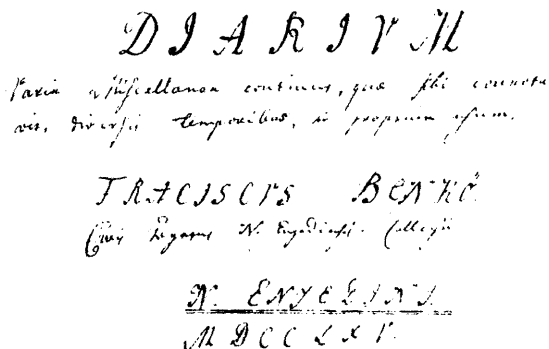 DIARIVM
Varia Miscellanea continens, quæ sibi connota
vit, diversis temporibus, in proprium usum.
FRACISCVS BENKÖ.
Civis Togatus N. Enyediensis Collegii
N. ENYEDINI.
MDCCLXV.